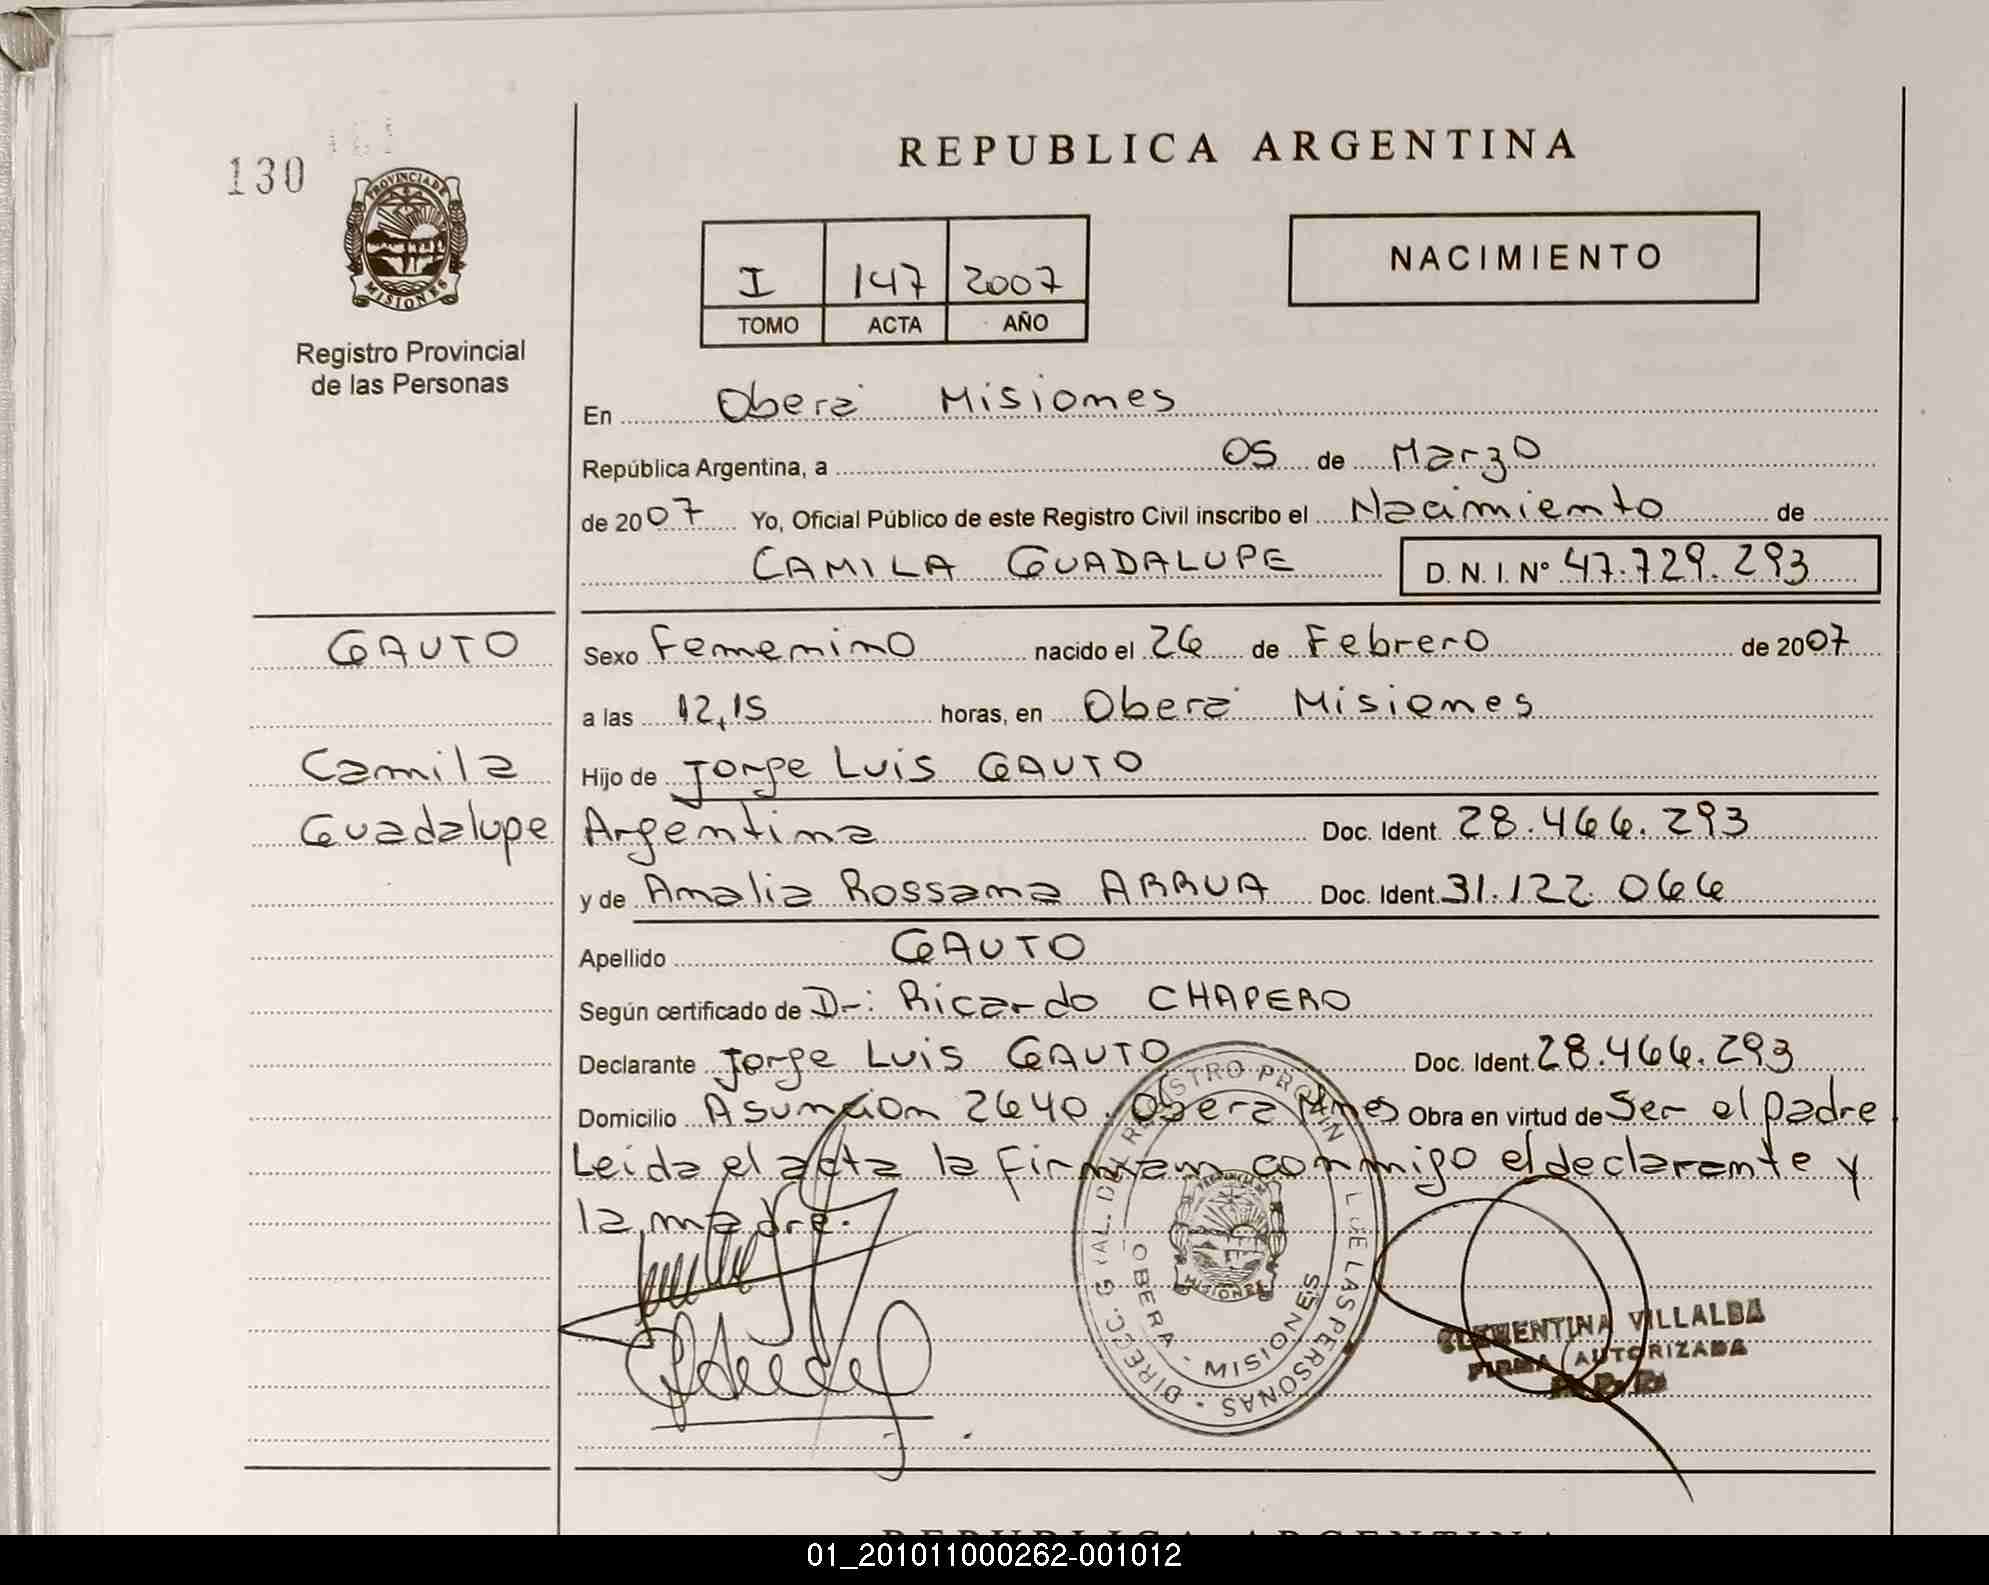 130
PROVINCIA DE
MISIONES
Registro Provincial
de las Personas
REPUBLICA ARGENTINA
I 147 2007
TOMO ACTA AÑO
NACIMIENTO
En Oberá Misiones
República Argentina, a 05 de Marzo
de 2007 Yo, Oficial Público de este Registro Civil inscribo el Nacimiento de
CAMILA GUADALUPE D.N.I. Nº 47.729.293
GAUTO
Sexo Femenino nacido el 26 de Febrero de 2007
a las 12,15 horas, en Oberá Misiones
Camila
Hijo de Jorge Luis GAUTO
Guadalupe
Argentina Doc. Ident. 28.466.293
y de Amalia Rossana ARRUA Doc. Ident. 31.122.066
Apellido GAUTO
Según certificado de Dr: Ricardo CHAPERO
Declarante Jorge Luis GAUTO Doc. Ident. 28.466.293
Domicilio Asunción 2640. Oberá Mnes Obra en virtud de Ser el padre
Leida el acta la firman conmigo el declarante y
la madre.
DIRECC. GRAL. DEL REGISTRO PROVINCIAL DE LAS PERSONAS
OBERA - MISIONES
MISIONES
CLEMENTINA VILLALBA
FIRMA AUTORIZADA
REPUBLICA ARGENTINA
01_201011000262-001012